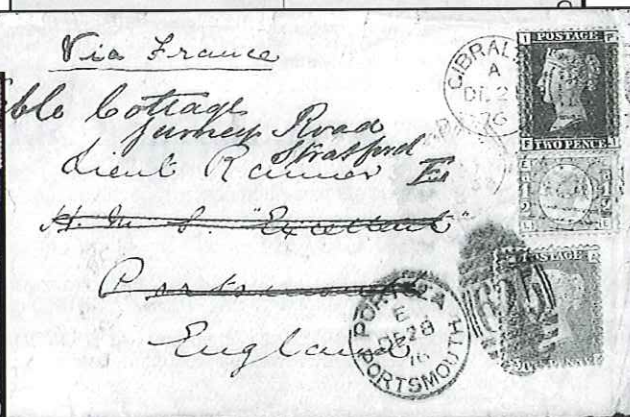 Via France
ble Cottage
Jurney Road
Stratford
Lieut Rannor E
H. M. S. "Excellent"
Portsmouth
England
GIBRAL
A
DE 2
76
POSTAGE
TWO PENCE
POSTAGE
PORTSEA
E
DE 28
76
PORTSMOUTH
625